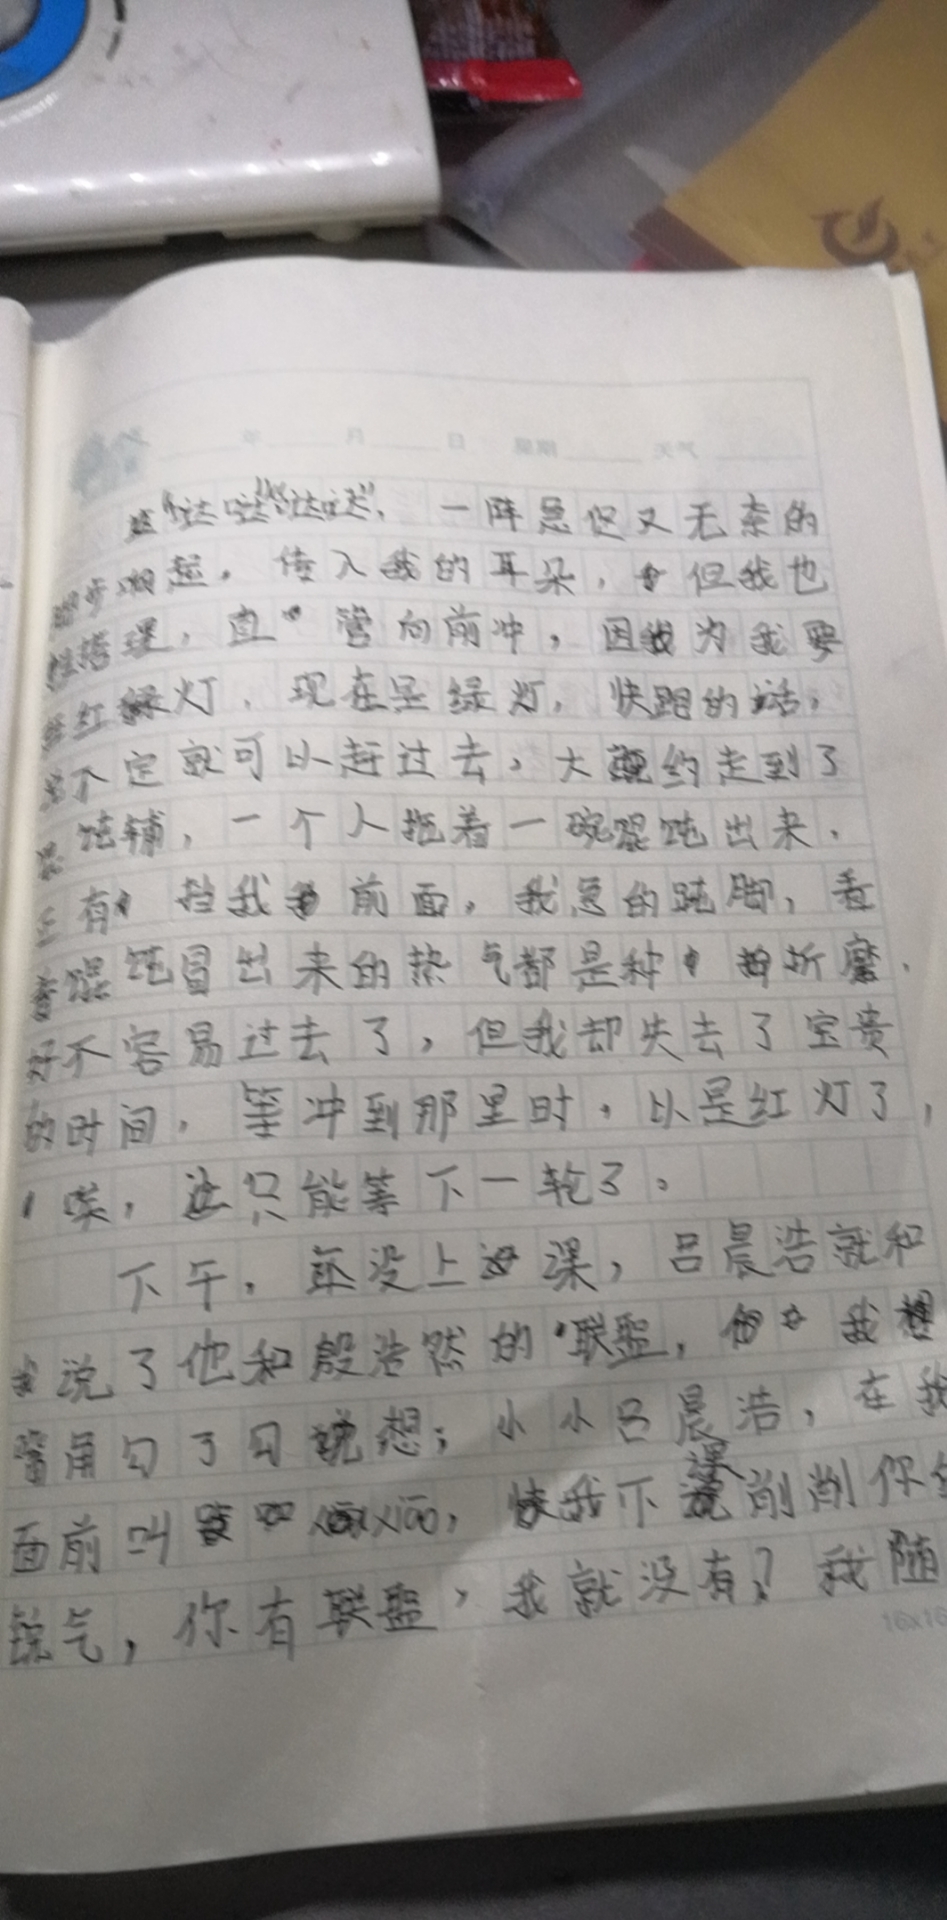 年 月 日 星期 天气
“哒哒”“哒哒”，一阵急促又无奈的
脚步响起，传入我的耳朵，但我也
理，直管向前冲，因为我要
红绿灯，现在是绿灯，快跑的话，
不定就可以赶过去，大约走到了
饨铺，一个人拖着一碗馄饨出来，
有挡我前面，我急的跺脚，看
着馄饨冒出来的热气都是种折磨，
好不容易过去了，但我却失去了宝贵
的时间，等冲到那里时，以是红灯了，
唉，这只能等下一轮了。
下午，还没上课，吕晨浩就和
我说了他和殷浩然的联盟，我
嘴角勾了勾想；小小吕晨浩，在我
面前叫，我下课削削你
锐气，你有联盟，我就没有？我随
16x16